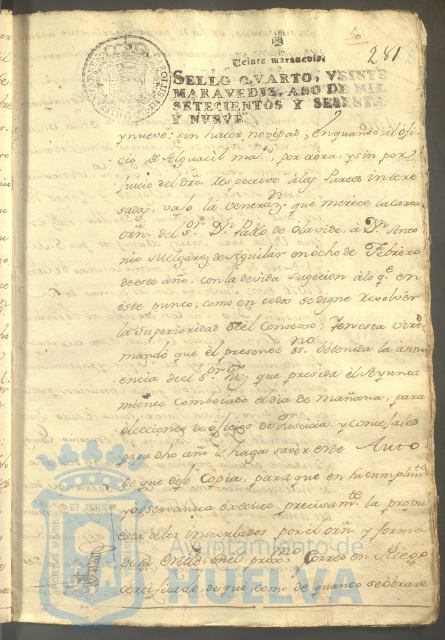 281
Veinte maravedis.
SELLO QVARTO, VEINTE
MARAVEDIS, AÑO DE MIL
SETECIENTOS Y SESENTA
Y NUEVE.
ynueve: sin hacer novedad, enquanto al ofi
cio de Alguacil mor. por aora, y sin per
juicio del dro. respectivo a las Partes intere
sadas, vajo la venerazn. que merece la carta
orn. del Sr. Dn. Pablo de Olavide, a Dn. Anto
nio Melgarejo de Aguilar en ocho de Febrero
de este año, con la devida sugecion alo qe. en
este punto, como en todo se digne resolver
la Superioridad del Consexo: Yen esta virtd.
mando que el presente ssno. obtenida la anu
encia del sor. Juez que presida el Ayunta
miento combocado el dia de mañana, para
elecciones de oficios de Justicia, y Consejales
para dho año le haga saver este Auto
de que deje Copia, para que en su cumplimto.
y observancia execute precisamte. la propu
esta de los insaculados por el orn. y forma
y en el proxmo. Correo en Pliego
certificado, de que, como de quanto se obrare
AYUNTAMIENTO DE
HUELVA